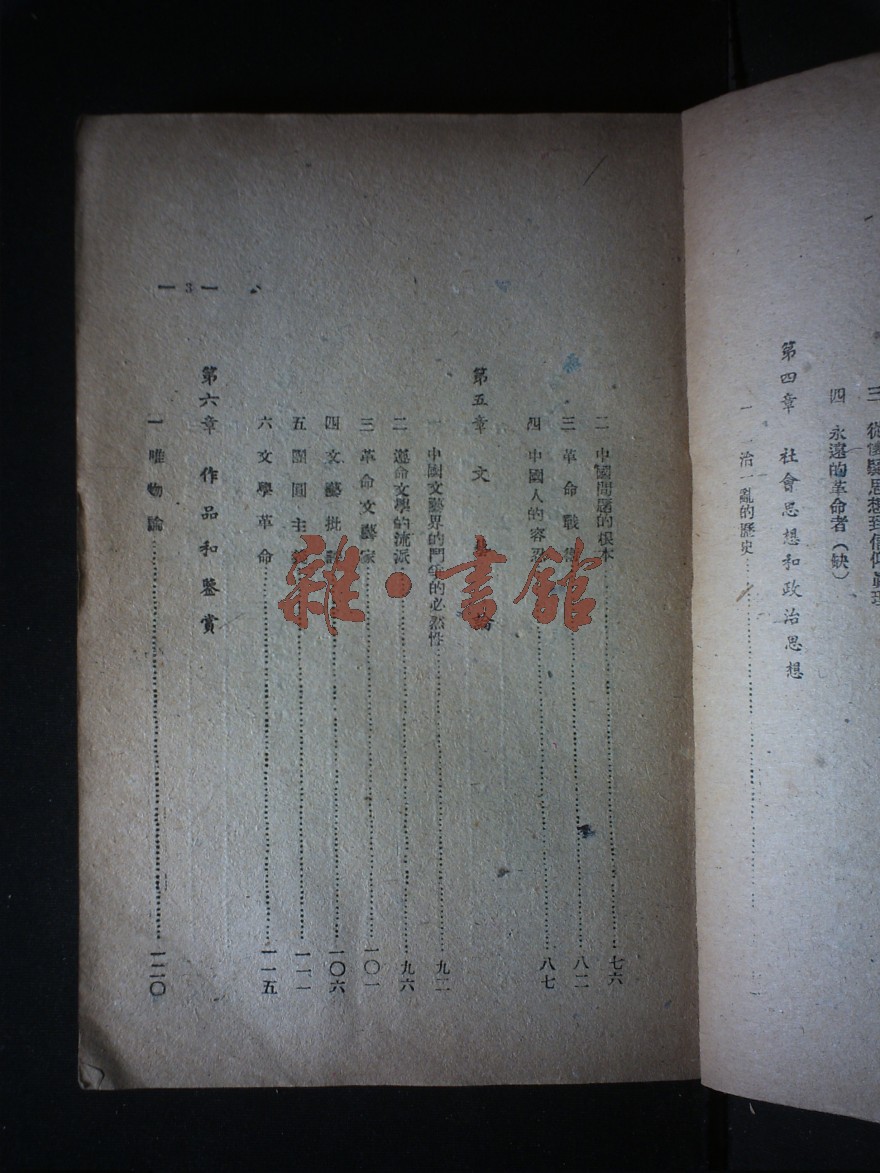 三 從懷疑思想到信仰真理
四 永遠的革命者(缺)
第四章 社會思想和政治思想
一 一治一亂的歷史
二 中國問題的根本 七六
三 革命戰術 八二
四 中國人的容忍 八七
第五章 文藝論
一 中國文藝界的鬥爭的必然性 九二
二 革命文學的流派 九六
三 革命文藝家 一〇一
四 文藝批評 一〇六
五 團圓主義 一一一
六 文學革命 一一五
第六章 作品和鑒賞
一 唯物論 一二〇
— 3 —
雜·書館